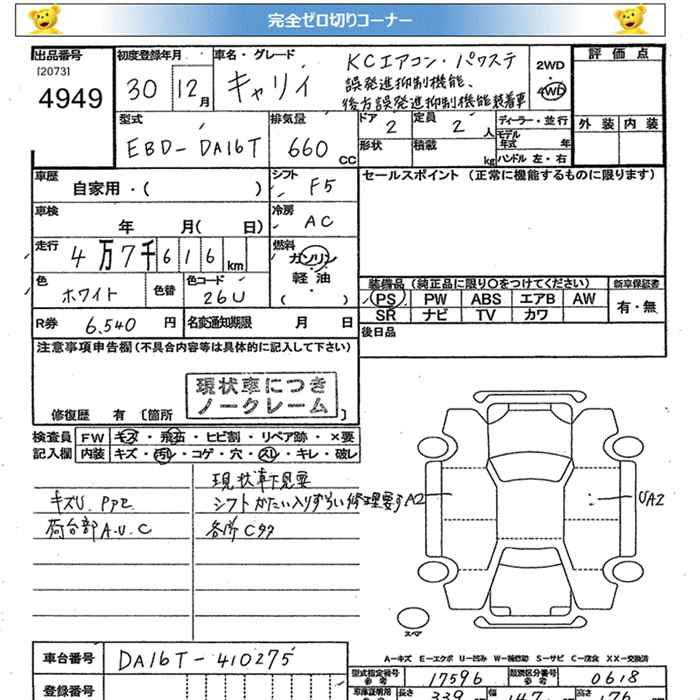 完全ゼロ切りコーナー
出品番号
[2073]
4949
初度登録年月
30 12月
車名・グレード
キャリイ
KCエアコン・パワステ
誤発進抑制機能、
後方誤発進抑制機能装着車
2WD
4WD
評価点
外装 内装
型式
EBD-DA16T
排気量
660 cc
ドア
2
定員
2 人
ディーラー・並行
モデル
年式 年
形状
積載 kg
ハンドル 左・右
車歴
自家用・( )
シフト
F5
セールスポイント (正常に機能するものに限ります)
車検
年 月( 日)
冷房
AC
走行
4万7千616 km
燃料
ガソリン
軽油
( )
色
ホワイト
色替
色コード
26U
装備品 (純正品に限り○をつけてください)
新車保証書
PS PW ABS エアB AW
SR ナビ TV カワ
有・無
R券 6.540 円
名変通知期限 月 日
後日品
注意事項申告欄 (不具合内容等は具体的に記入して下さい)
現状車につき
ノークレーム
修復歴 有 [箇所
検査員
記入欄
FW キズ・飛石・ヒビ割・リペア跡・×要
内装 キズ・汚レ・コゲ・穴・スレ・キレ・破レ
現状車下見要
キズU. PPE
シフトかたい入りずらい修理要す
荷台部A.U.C
各所Cサク
A2
UA2
スペア
A…キズ E…エクボ U…凹み W…補修跡 S…サビ C…腐食 XX…交換済
車台番号 DA16T-410275
登録番号
型式指定番号
参考
17596
類別区分番号
参考
0618
車庫証明用
長さ 339 幅 147 高さ 176